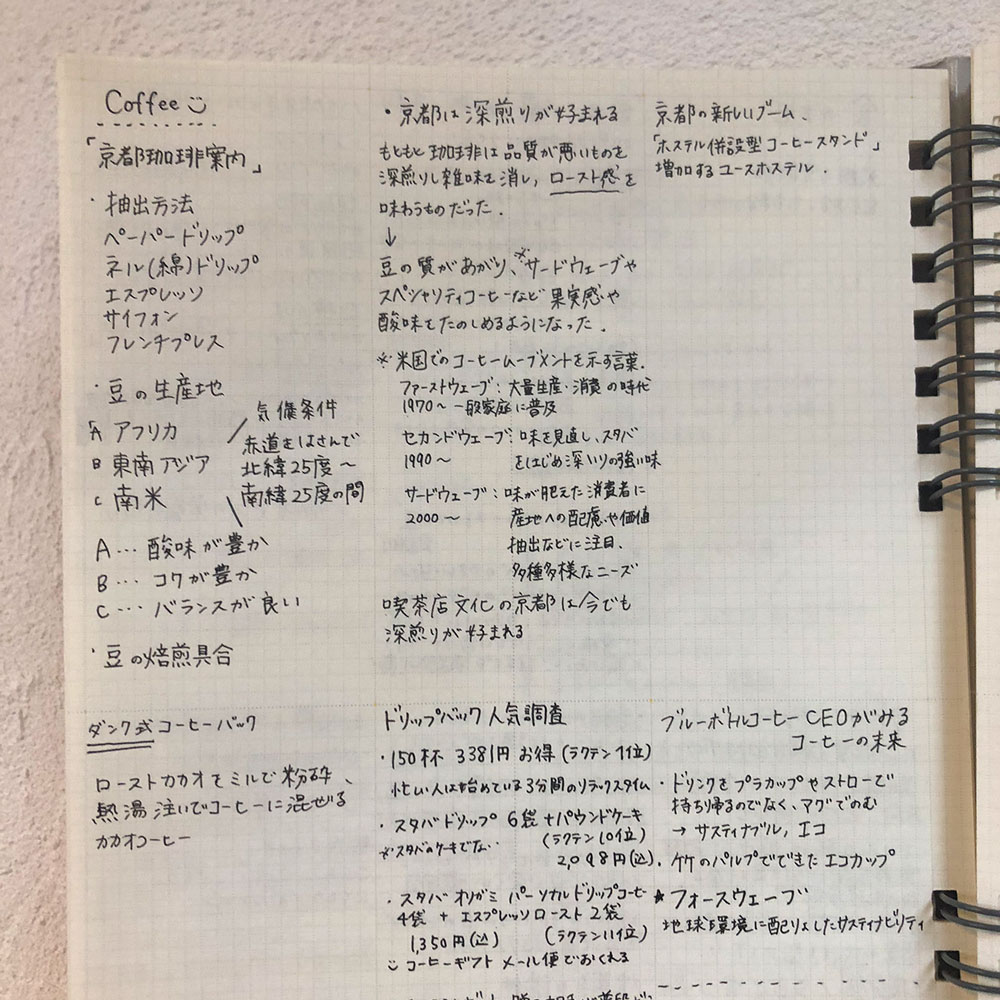 Coffee
「京都珈琲案内」
・抽出方法
ペーパードリップ
ネル(綿)ドリップ
エスプレッソ
サイフォン
フレンチプレス
・豆の生産地
気候条件
「A アフリカ
B 東南アジア
C 南米
赤道をはさんで
北緯25度〜
南緯25度の間
A… 酸味が豊か
B… コクが豊か
C… バランスが良い
・豆の焙煎具合
・京都は深煎りが好まれる
もともと珈琲は品質が悪いものを
深煎りし雑味を消し、ロースト感を
味わうものだった.
↓
豆の質があがり、※サードウェーブや
スペシャリティコーヒーなど果実感や
酸味をたのしめるようになった.
※米国でのコーヒームーブメントを示す言葉.
ファーストウェーブ:大量生産・消費の時代
1970〜 一般家庭に普及
セカンドウェーブ:味を見直し、スタバ
1990〜 をはじめ深いりの強い味
サードウェーブ:味が肥えた消費者に
2000〜 産地への配慮や価値
抽出などに注目、
多種多様なニーズ
喫茶店文化の京都は今でも
深煎りが好まれる
京都の新しいブーム、
「ホステル併設型コーヒースタンド」
増加するユースホステル.
ダンク式コーヒーバック
ローストカカオをミルで粉砕、
熱湯注いでコーヒーに混ぜる
カカオコーヒー
ドリップバック人気調査
・150杯 3381円 お得(ラクテン1位)
忙しい人は始めている3分間のリラックスタイム
・スタバドリップ 6袋+パウンドケーキ
※スタバのケーキでない (ラクテン10位)
2,098円(込)
・スタバ オリガミ パーソナルドリップコーヒー
4袋 + エスプレッソロースト2袋
1,350円(込) (ラクテン11位)
コーヒーギフト メール便でおくれる
ブルーボトルコーヒー CEOがみる
コーヒーの未来
・ドリンクをプラカップやストローで
持ち帰るのでなく、マグでのむ
→ サスティナブル, エコ
・竹のパルプでできたエコカップ
★フォースウェーブ
地球環境に配りょしたサスティナビリティ